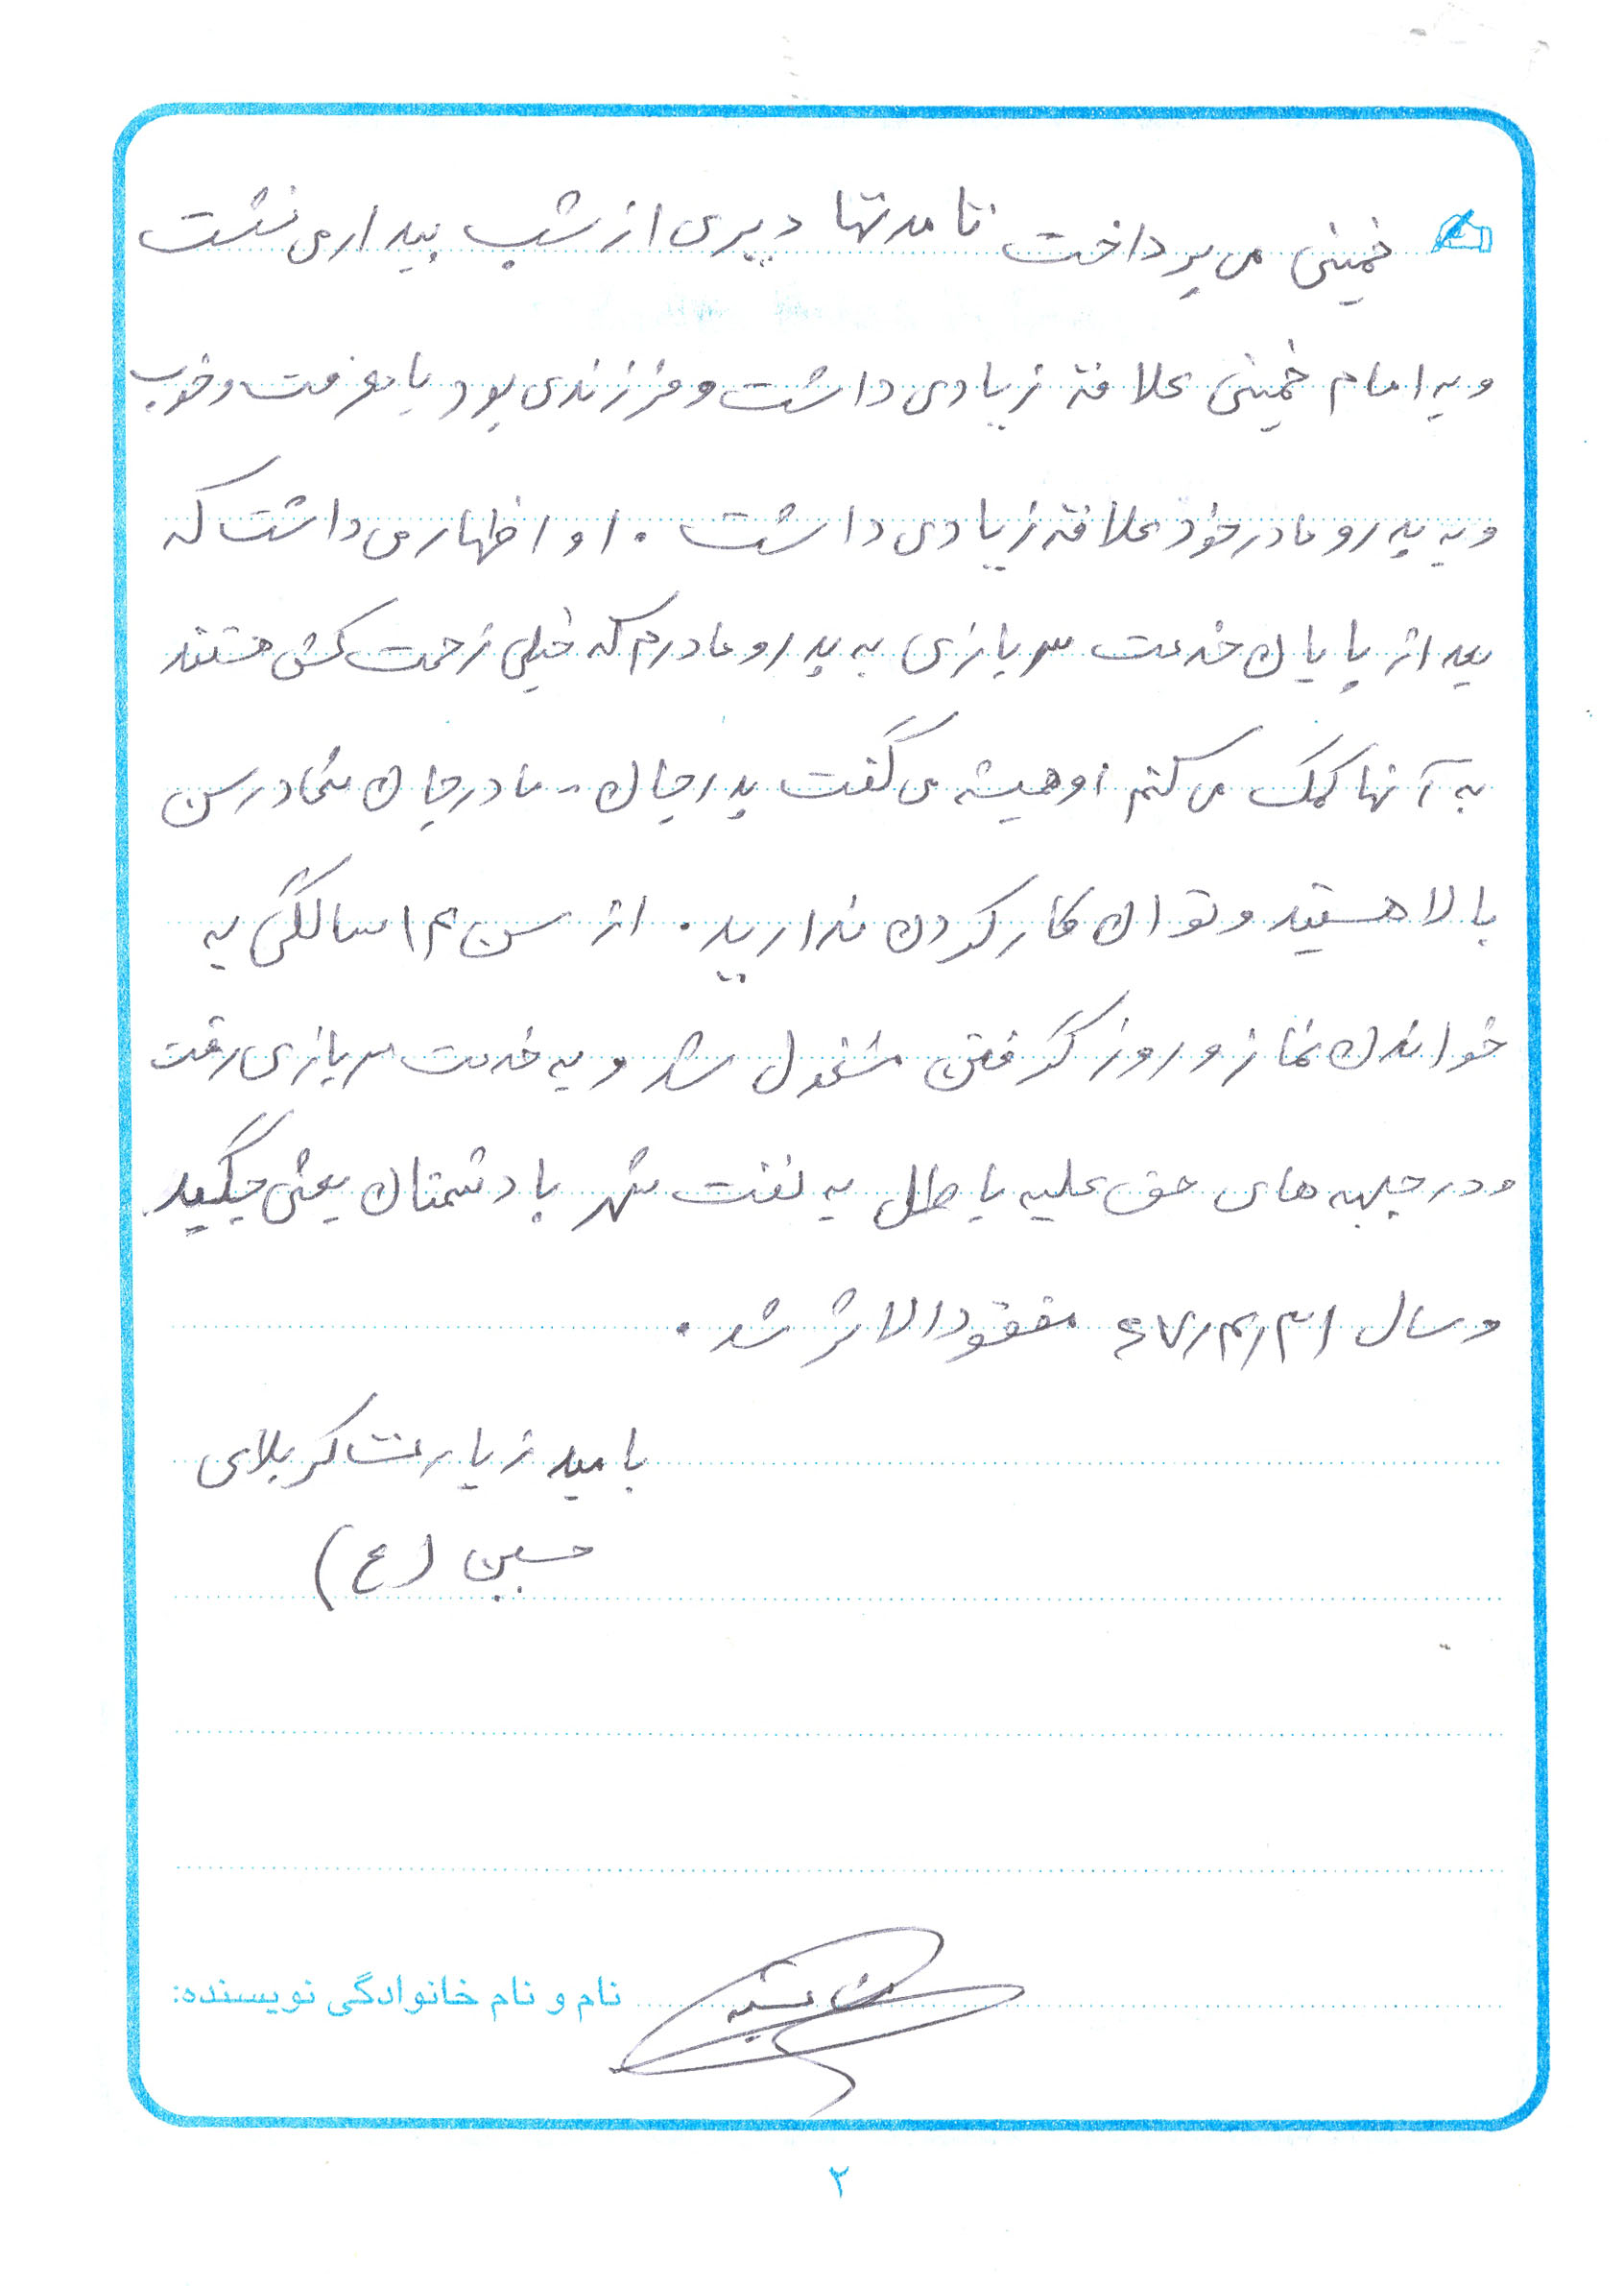 خمینی می پرداخت تا مدتها دیری از شب بیدار می نشست
و به امام خمینی علاقه زیادی داشت و فرزندی بود با معرفت و خوب
و به پدر و مادر خود علاقه زیادی داشت . او اظهار می داشت که
بعد از پایان خدمت سربازی به پدر و مادرم که خیلی زحمت کش هستند
به آنها کمک می کنم او همیشه می گفت پدر جان - مادر جان شما در سن
بالا هستید و توان کار کردن ندارید . از سن ۱۴ سالگی به
خواندن نماز و روز گرفتن مشغول شد و به خدمت سربازی رفت
و در جبهه های حق علیه باطل به نفت شهر با دشمنان بعثی جنگید
و سال ۶۷/۴/۳۱ مفقود الاثر شد .
بامید زیارت کربلای
حسین (ع)
نام و نام خانوادگی نویسنده:
۲